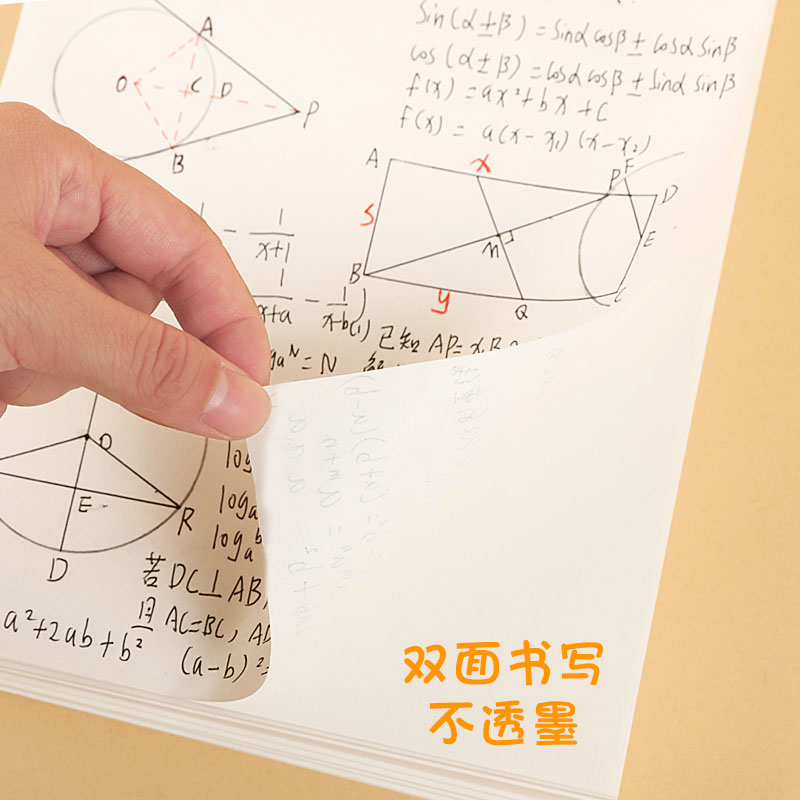 A
O C D P
B
Sin(α±β)=Sinα cosβ±cosα Sinβ
cos(α±β)=cosα cosβ±Sinα sinβ
f(x)=ax²+bx+c
f(x)=a(x-x₁)(x-x₂)
A x P F D
5 n E
B y Q C
- 1/(x+1)
1/(x+a) - 1/(x-b)
已知 AP=x,B
N=N
O
E R
D
log
loga
logab
若DC⊥AB,
且AC=BC,
a²+2ab+b²
(a-b)²=
双面书写
不透墨